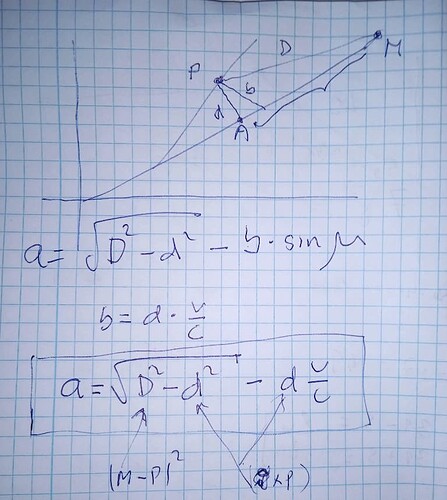 D
M
P
b
d
A
a = √D² - d² - b · sin μ
b = d · v/c
a = √D² - d² - d v/c
(M-P)²
( × P)